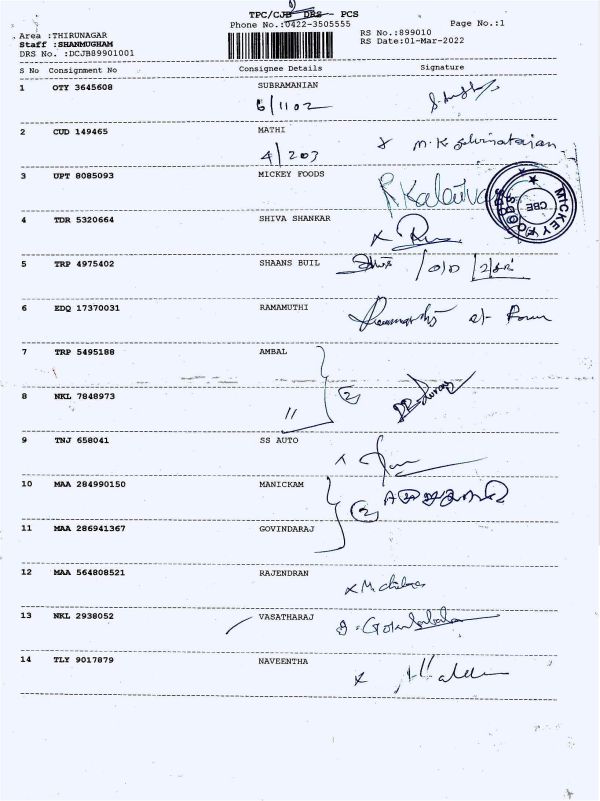 TPC/CJB DRS PCS
Phone No.:0422-3505555
Page No.:1
Area :THIRUNAGAR
RS No.:899010
Staff :SHANMUGHAM
RS Date:01-Mar-2022
DRS No. :DCJB89901001
S No Consignment No Consignee Details Signature
1 OTY 3645608 SUBRAMANIAN
6/1102
2 CUD 149465 MATHI
4/203
3 UPT 8085093 MICKEY FOODS
MICKEY FOODS
CBE
4 TDR 5320664 SHIVA SHANKAR
5 TRP 4975402 SHAANS BUIL
6 EDQ 17370031 RAMAMUTHI
7 TRP 5495188 AMBAL
2
8 NKL 7848973
"
9 TNJ 658041 SS AUTO
10 MAA 284990150 MANICKAM
2
11 MAA 286941367 GOVINDARAJ
12 MAA 564808521 RAJENDRAN
13 NKL 2938052 VASATHARAJ
14 TLY 9017879 NAVEENTHA